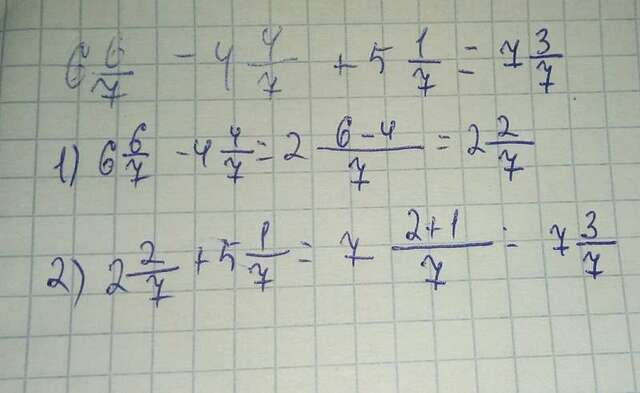 6 6/7 - 4 4/7 + 5 1/7 = 7 3/7
1) 6 6/7 - 4 4/7 = 2 (6-4)/7 = 2 2/7
2) 2 2/7 + 5 1/7 = 7 (2+1)/7 = 7 3/7